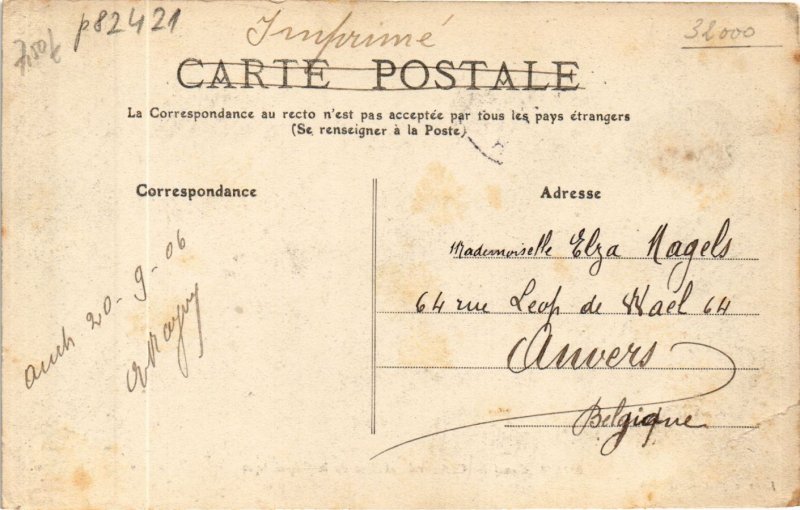 7,50€
p82421
Imprimé
32000
CARTE POSTALE
La Correspondance au recto n'est pas acceptée par tous les pays étrangers
(Se renseigner à la Poste)
Correspondance
Adresse
Mademoiselle Elza Nagels
64 rue Leop de Wael 64
Anvers
Belgique
auch 20-9-06